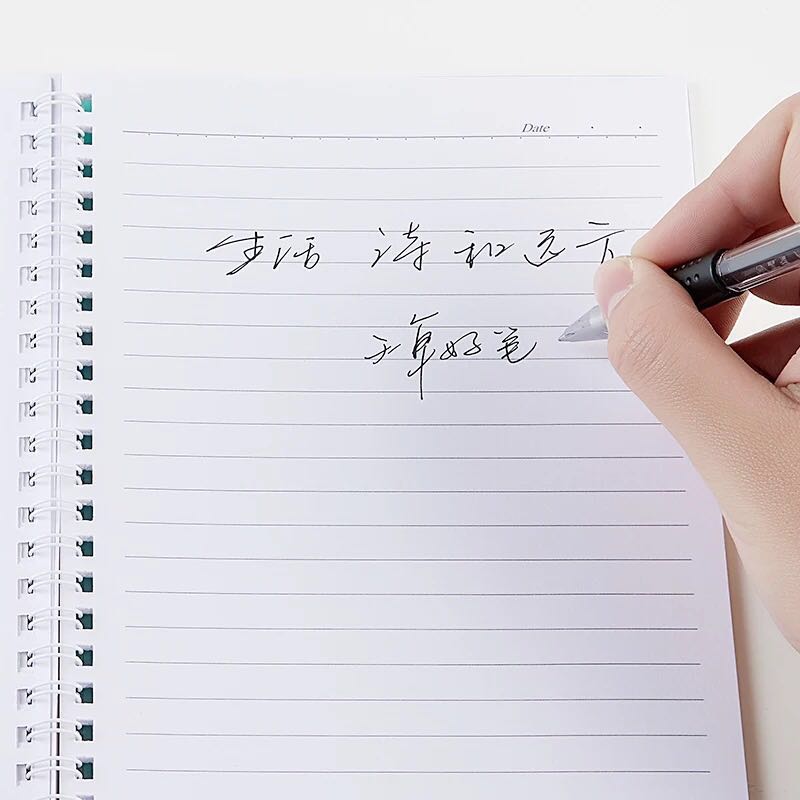 Date
生活 诗和远方
好笔